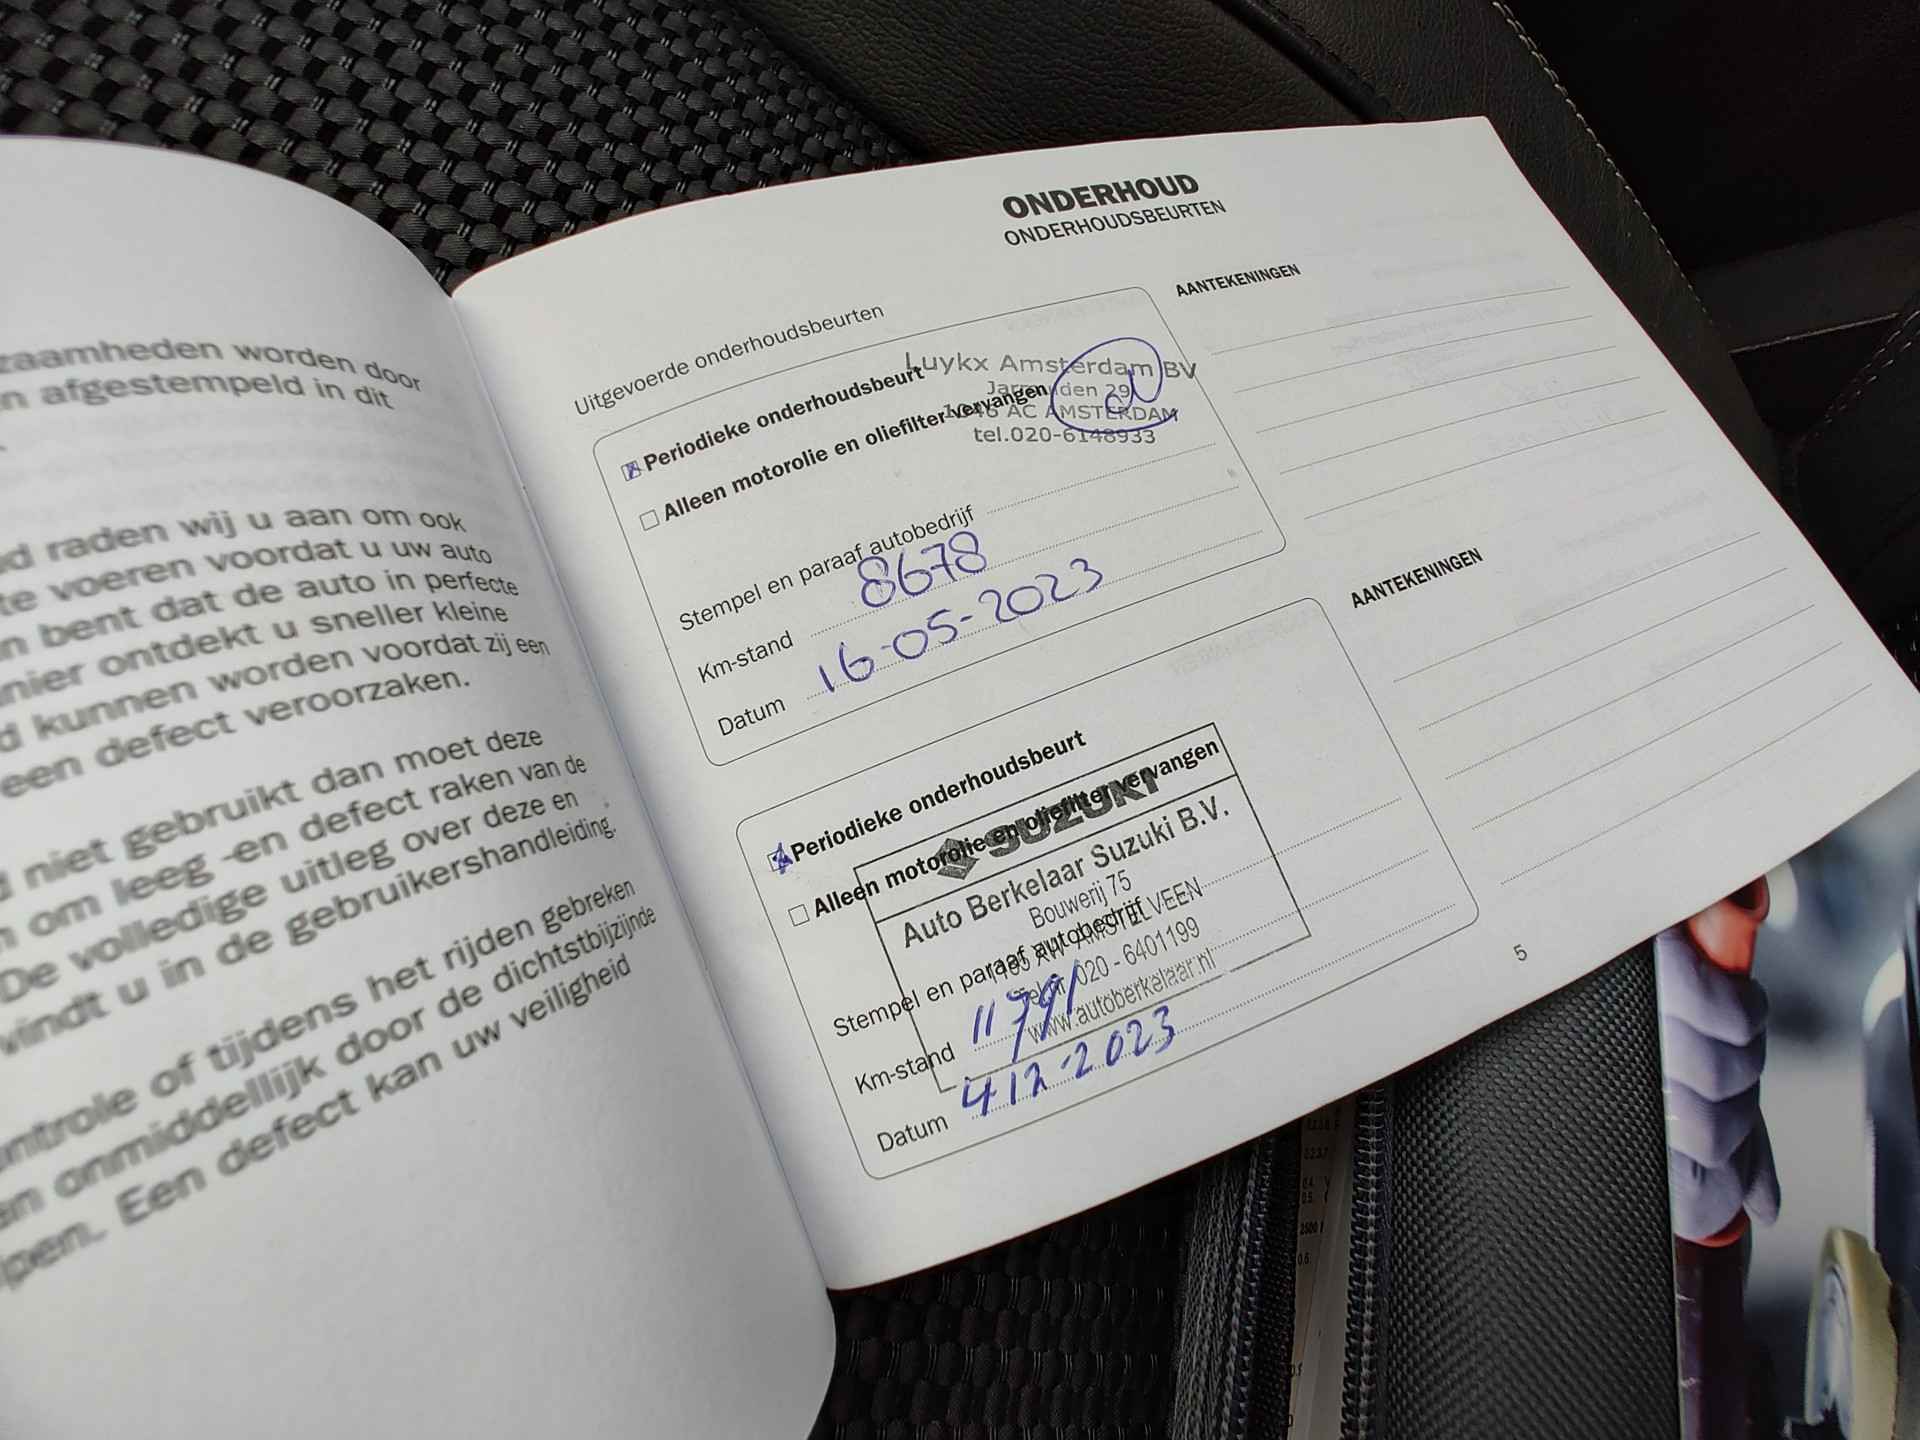 zaamheden worden door
n afgestempeld in dit
ud raden wij u aan om ook
te voeren voordat u uw auto
n bent dat de auto in perfecte
nier ontdekt u sneller kleine
d kunnen worden voordat zij een
een defect veroorzaken.
d niet gebruikt dan moet deze
n om leeg -en defect raken van de
De volledige uitleg over deze en
vindt u in de gebruikershandleiding.
ntrole of tijdens het rijden gebreken
an onmiddellijk door de dichtstbijzijnde
ipen. Een defect kan uw veiligheid
ONDERHOUD
ONDERHOUDSBEURTEN
Uitgevoerde onderhoudsbeurten
Periodieke onderhoudsbeurt
Alleen motorolie en oliefilter vervangen
Luykx Amsterdam BV
29
1046 AC AMSTERDAM
tel.020-6148933
Stempel en paraaf autobedrijf
Km-stand 8678
Datum 16-05-2023
AANTEKENINGEN
Periodieke onderhoudsbeurt
Alleen motorolie en oliefilter vervangen
SUZUKI
Auto Berkelaar Suzuki B.V.
Bouwerij 75
AMSTELVEEN
020 - 6401199
www.autoberkelaar.nl
Stempel en paraaf autobedrijf
Km-stand 11791
Datum 4 12-2023
AANTEKENINGEN
5